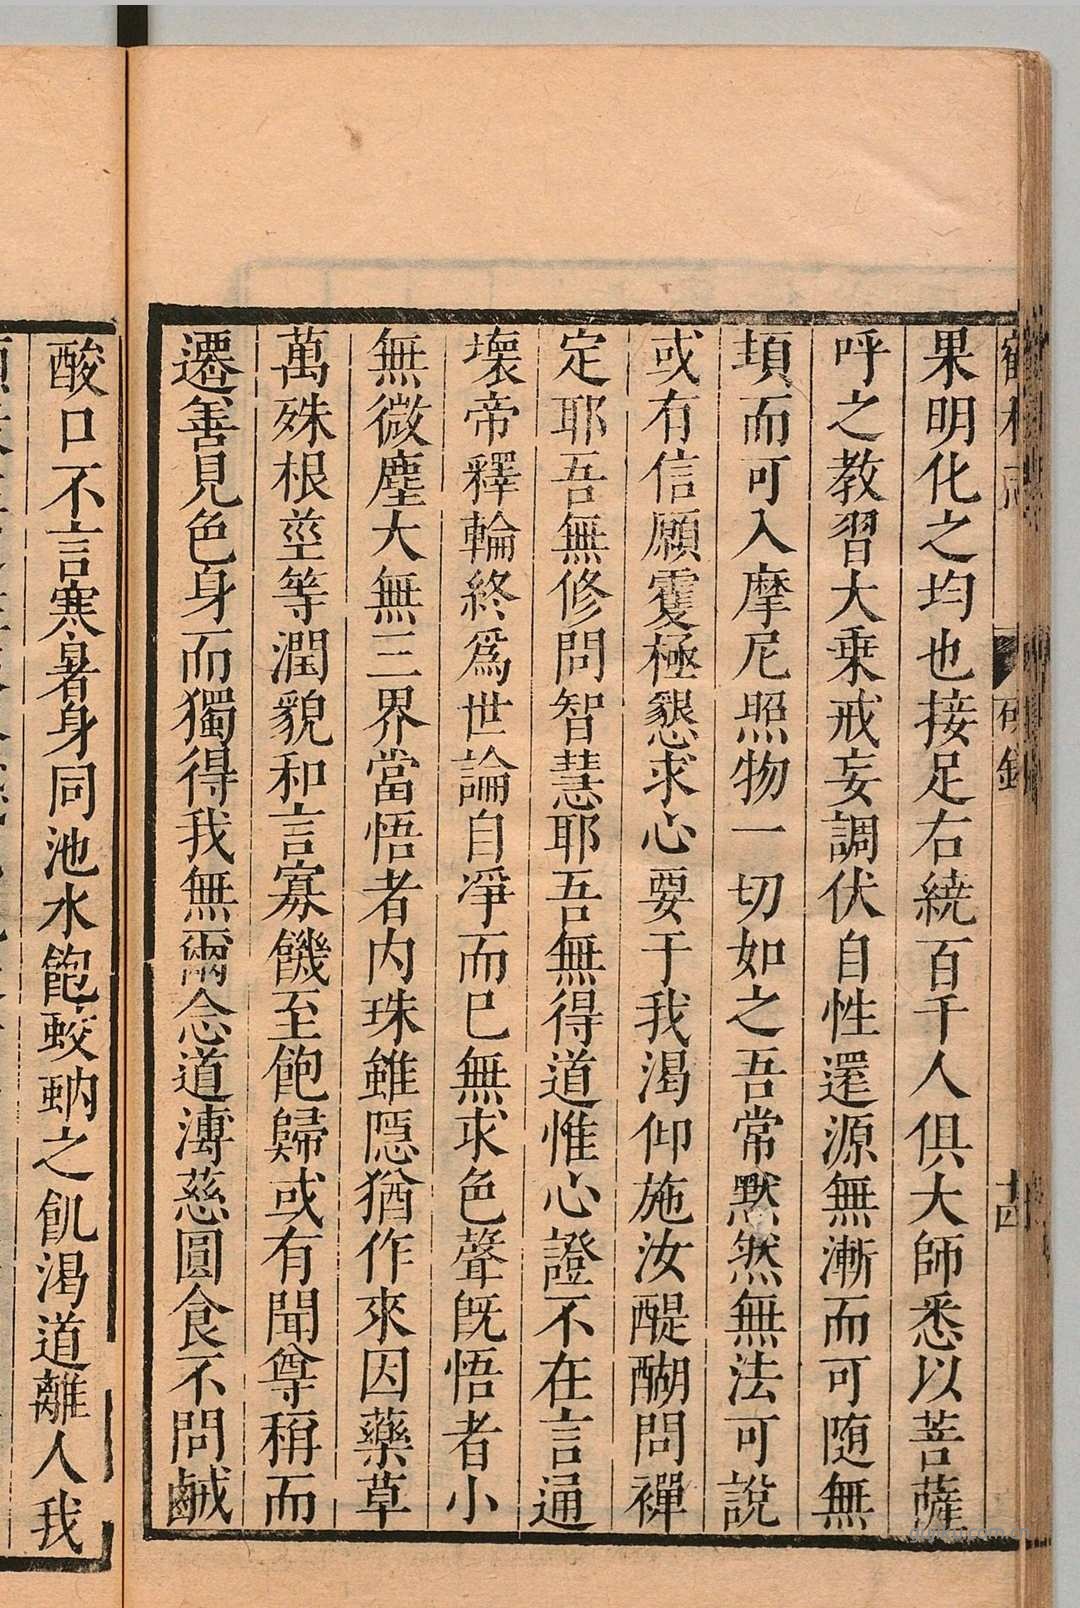 果明化之均也接足右繞百千人俱大師悉以菩薩
呼之教習大乗戒妄調伏自性還源無漸而可随無
頓而可入摩尼照物一切如之吾常默然無法可說
或有信願霎極懇求心要于我渴仰施汝醍醐問禪
定耶吾無修問智慧耶吾無得道惟心證不在言通
壊帝釋輪終爲世論自凈而巳無求色聲旣悟者小
無微塵大無三界當悟者内珠雖隱猶作來因藥草
萬殊根莖等潤貌和言寡饑至飽歸或有聞尊稱而
遷善見色身而獨得我無爾念道溥慈圓食不問鹹
酸口不言寒暑身同池水飽蛟蚋之飢渴道離人我